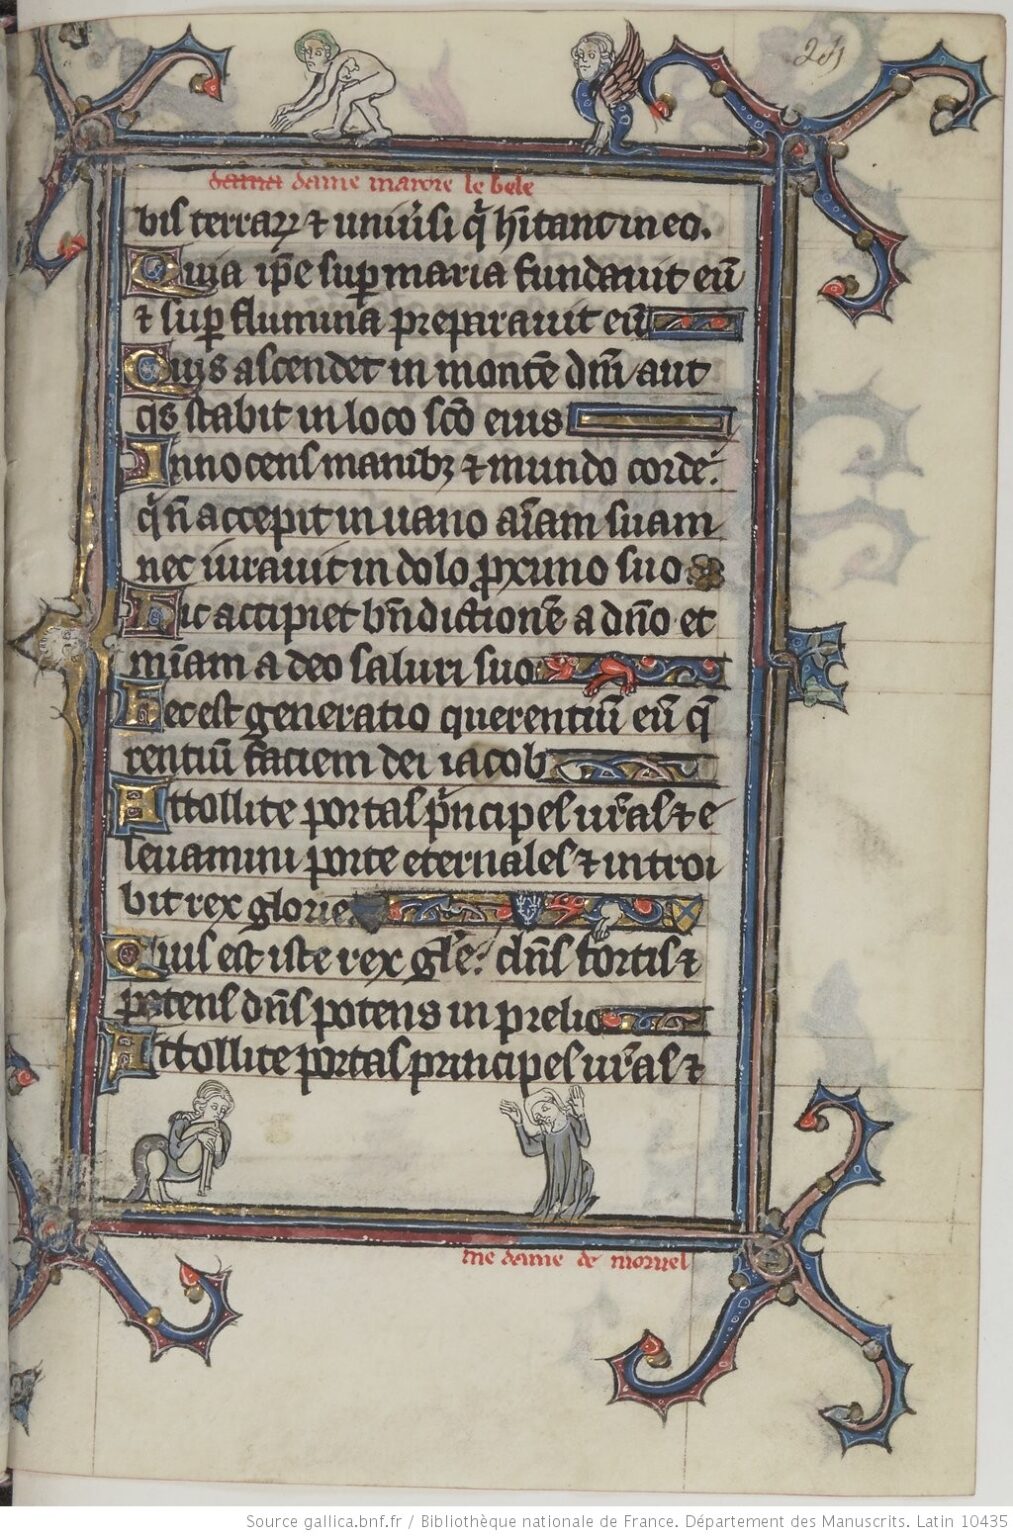 24
dama dame maroie le bele
bis terraꝝ ⁊ uniũsi q̃ hĩtant in eo.
Quia ip̃e sup maria fundauit eũ
⁊ sup flumina preparauit eũ
Quis ascendet in montẽ dñi aut
q̃s stabit in loco sc̃o eius
Innocens manibꝫ ⁊ mundo corde:
q̃ ñ accepit in uano aĩam suam
nec iurauit in dolo ꝓximo suo
Hic accipiet bñdictionẽ a dño et
mĩam a deo salutari suo
Hec est generatio querentiũ eũ q̃
rentiũ faciem dei iacob
Attollite portas p̃ncipes ur̃as ⁊ e
leuamini porte eternales ⁊ introi
bit rex glorie
Quis est iste rex gl̃e: dñs fortis ⁊
potens dñs potens in prelio
Attollite portas principes ur̃as ⁊
me dame de moruel
Source gallica.bnf.fr / Bibliothèque nationale de France. Département des Manuscrits. Latin 10435